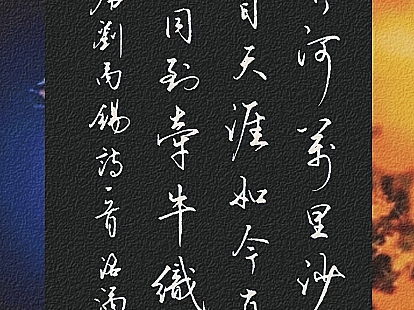 河萬里沙
自天涯如今直
同到牽牛織
唐劉禹錫詩一首